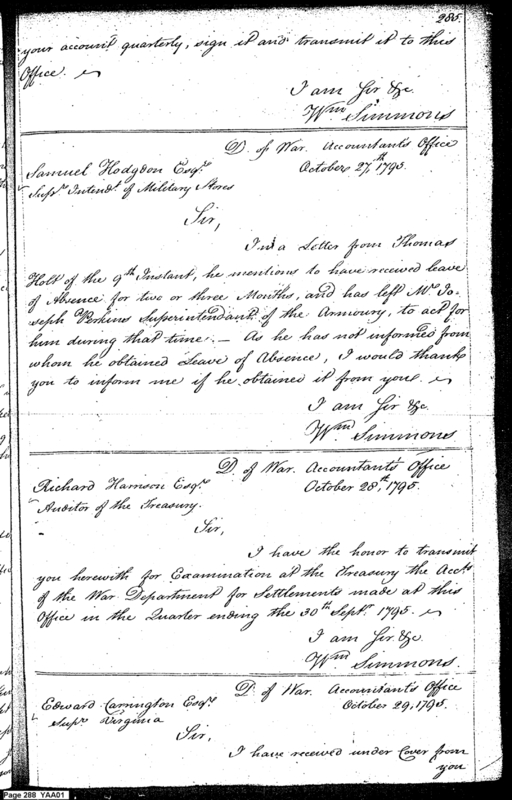 285.
your account quarterly, sign it and transmit it to this
Office.
I am Sir &c.
Wm Simmons
D. of War. Accountant's Office
October 27th, 1795.
Samuel Hodgdon Esqr.
Supr. Intendt. of Military Stores
Sir,
In a Letter from Thomas
Holt of the 9th Instant, he mentions to have received leave
of Absence for two or three Months, and has left Mr. Jo-
seph Perkins Superintendant of the Armoury, to act for
him during that time. — As he has not informed from
whom he obtained Leave of Absence, I would thank
you to inform me if he obtained it from you.
I am Sir &c.
Wm Simmons
D. of War. Accountant's Office
October 28th, 1795.
Richard Harrison Esqr.
Auditor of the Treasury.
Sir,
I have the honor to transmit
you herewith for Examination at the Treasury the Accts.
of the War Department for Settlements made at this
Office in the Quarter ending the 30th Septr. 1795.
I am Sir &c.
Wm Simmons.
D. of War. Accountant's Office
October 29, 1795.
Edward Carrington Esqr.
Supr. Virginia
Sir,
I have received under Cover from
you
Page 288 YAA01